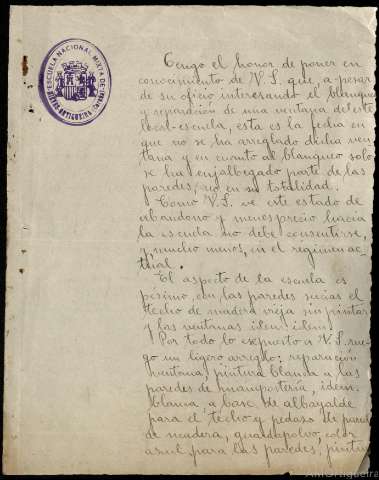 ESCUELA NACIONAL MIXTA DE
ORTIGUEIRA
Tengo el honor de poner en
conocimiento de V.S. que, a pesar
de su oficio interesando el blanqueo
y reparación de una ventana del este
local-escuela, esta es la fecha en
que no se ha arreglado dicha ven-
tana y en cuanto al blanqueo solo
se ha enjalbegado parte de las
paredes, no en su totalidad.
Como V.S. ve este estado de
abandono y menosprecio hacia
la escuela no debe consentirse,
y mucho menos, en el regimen ac-
tual.
El aspecto de la escuela es
pésimo, con las paredes sucias el
techo de madera vieja sin pintar
y las ventanas idem idem.
Por todo lo expuesto a V.S. rue-
go un ligero arreglo: reparación
ventana, pintura blanca a las
paredes de mampostería, idem
blanca a base de albayalde
para el techo y pedazo de pared
de madera, guardapolvo, color
azul para las paredes, pintura